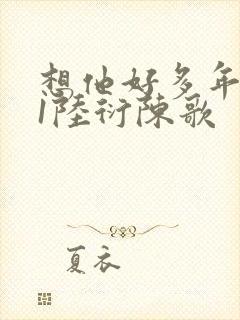 想他好多年
1陸衍陳歌
夏衣